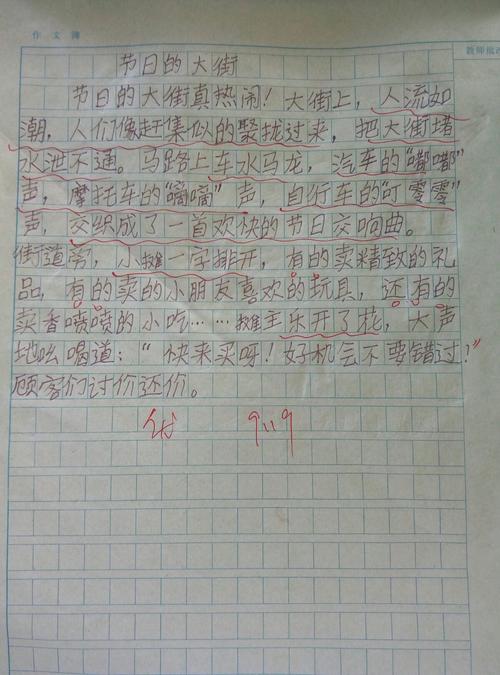 作文簿
教师批
节日的大街
节日的大街真热闹！大街上，人流如
潮，人们像赶集似的聚拢过来，把大街堵
水泄不通。马路上车水马龙，汽车的“嘟嘟”
声，摩托车的“嘀嘀”声，自行车的“叮零零”
声，交织成了一首欢快的节日交响曲。
街道旁，小摊一字排开，有的卖精致的礼
品，有的卖的小朋友喜欢的玩具，还有的
卖香喷喷的小吃……摊主乐开了花，大声
地吆喝道：“快来买呀！好机会不要错过？”
顾客们讨价还价。
优 9.19